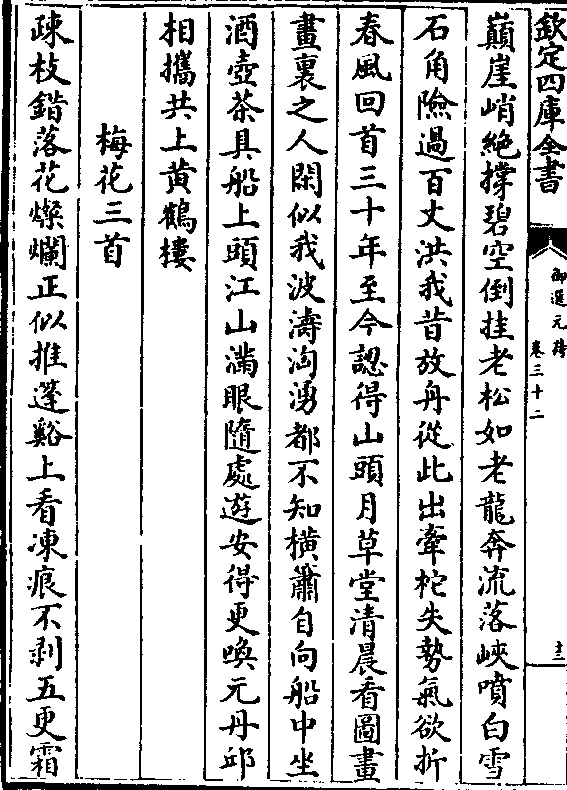 欽定四庫全書
御選元詩
卷三十二
巔崖峭絶撑碧空倒挂老松如老龍奔流落峽噴白雪
石角險過百丈洪我昔放舟從此出牽柁失勢氣欲折
春風回首三十年至今認得山頭月草堂清晨看圖畫
畫裏之人閑似我波濤洶湧都不知橫簫自向船中坐
酒壺茶具船上頭江山滿眼隨處遊安得更喚元丹邱
相攜共上黄鶴樓
梅花三首
疎枝錯落花燦爛正似推蓬谿上看凍痕不剥五更霜